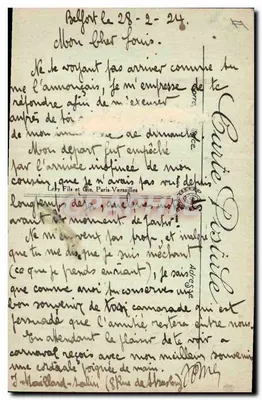 Belfort le 28-2-24.
Mon Cher Louis.
Ne te voyant pas arriver comme tu
me l'annonçais, je m'empresse de te
répondre afin de m'excuser
auprès de toi
de mon de dimanche
Mon départ fut empêché
par l'arrivée inopinée de mon
cousin que je n'avais pas vu depuis
longtemps
avant le moment de partir!
Ne m'en veut pas trop, et malgré
que tu me dis que je suis méchant
(ce que je prends en riant), je sais
que comme moi tu conserves un
bon souvenir de ton camarade qui est
persuadé que l'amitié restera entre nous.
En attendant le plaisir de te voir à
carnaval reçois avec mon meilleur souvenir
une cordiale poignée de main.
Carte Postale
Correspondance
Adresse
Lévy Fils et Cie, Paris-Versailles